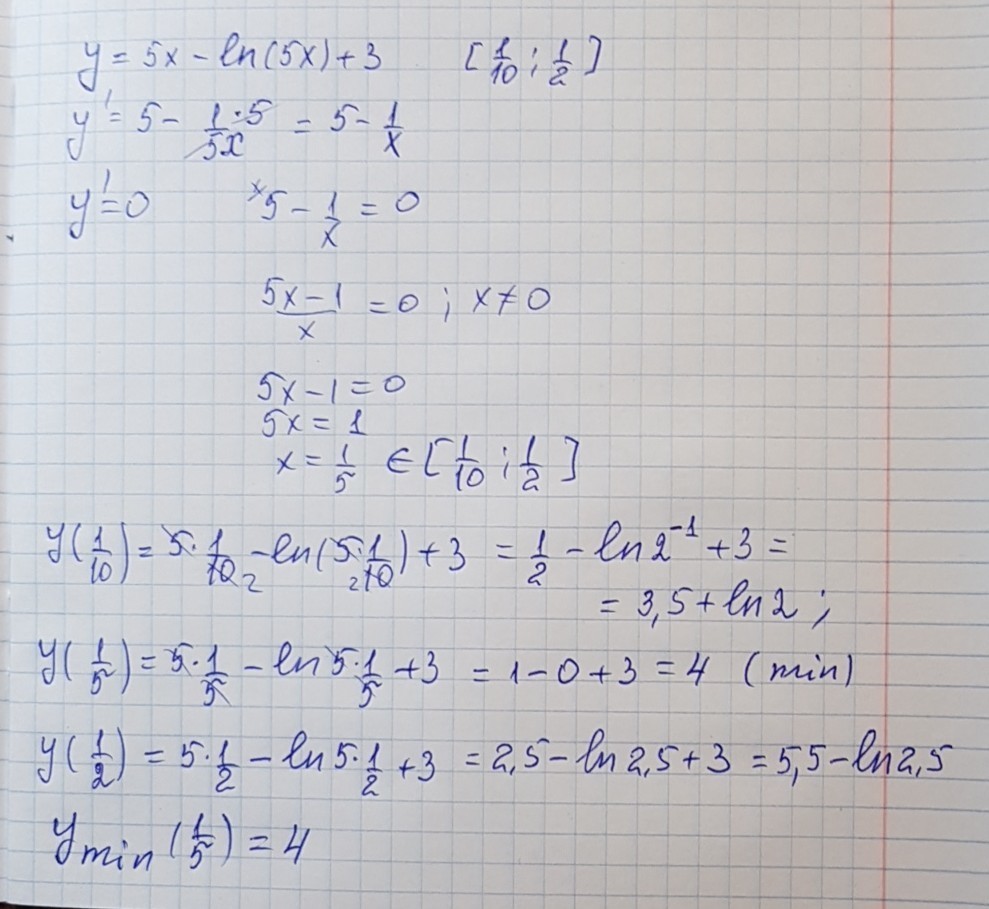 y = 5x - ln(5x) + 3 [1/10 ; 1/2]
y' = 5 - 1·5/5x = 5 - 1/x
y' = 0 ˣ5 - 1/x = 0
5x - 1/x = 0 ; x ≠ 0
5x - 1 = 0
5x = 1
x = 1/5 ∈ [1/10 ; 1/2]
y(1/10) = 5 · 1/10 2 - ln(5 · 1/2 10) + 3 = 1/2 - ln2⁻¹ + 3 =
= 3,5 + ln2 ;
y(1/5) = 5 · 1/5 - ln5 · 1/5 + 3 = 1 - 0 + 3 = 4 (min)
y(1/2) = 5 · 1/2 - ln5 · 1/2 + 3 = 2,5 - ln2,5 + 3 = 5,5 - ln2,5
y min (1/5) = 4